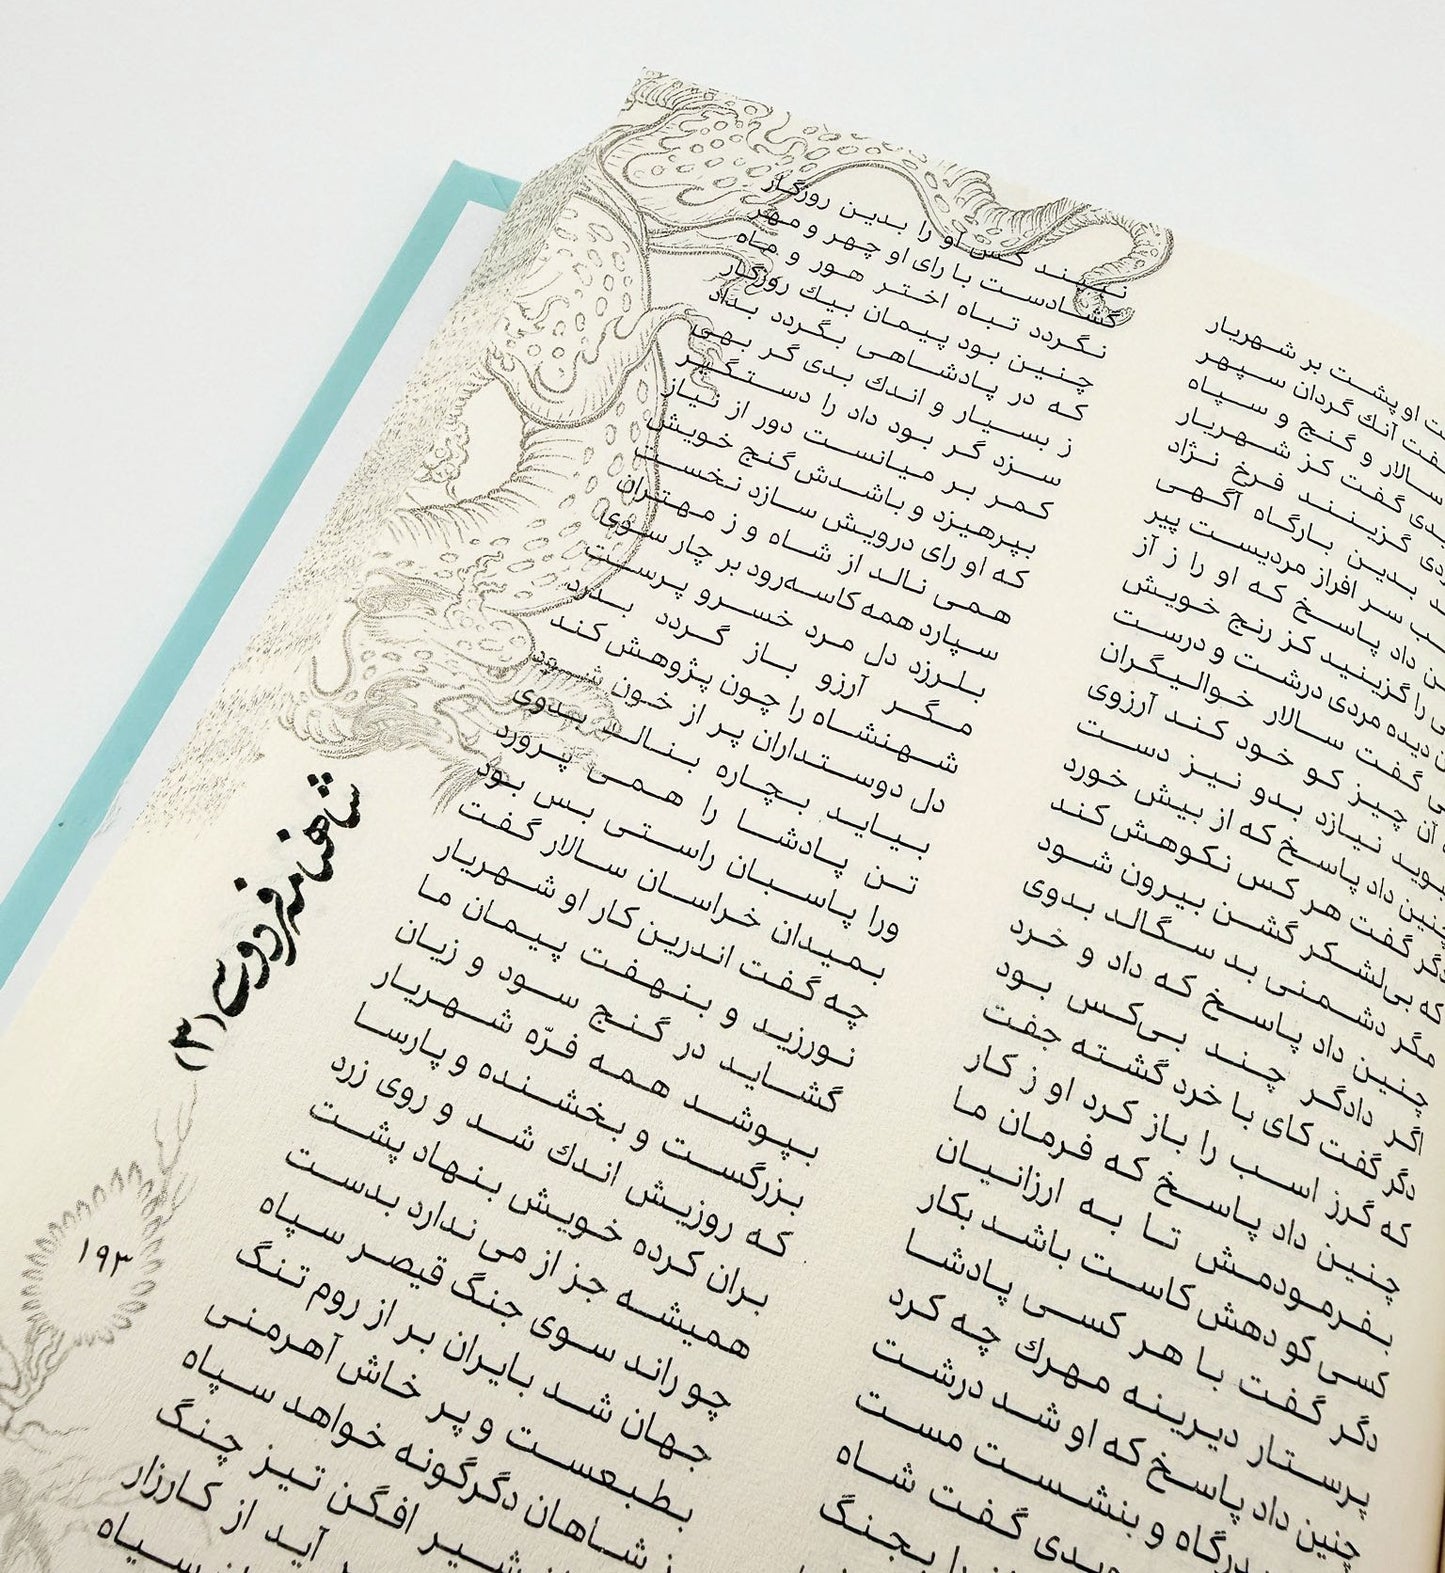 ت او پشت بر شهریار
نبیند کس او را بدین روزگار
فت آنك گردان سپهر
گشادست با رای او چهر و مهر
سالار و گنج و سپاه
نگردد تباه اختر هور و ماه
بدی گفت کز شهریار
چنین بود پیمان بیك روزگار
دی گزینند فرخ نژاد
که در پادشاهی بگردد بداد
بدین بارگاه آگهی
ز بسیار و اندك بدی گر بهی
سر افراز مردیست پیر
سزد گر بود داد را دستگیر
ن داد پاسخ که او را ز آز
کمر بر میانست دور از نیاز
را گزینید کز رنج خویش
بپرهیزد و باشدش گنج خویش
دیده مردی درشت و درست
که او رای درویش سازد نخست
گفت سالار خوالیگران
همی نالد از شاه و ز مهتران
آن چیز کو خود کند آرزوی
سپارد همه کاسه‌رود بر چار سوی
گوید نیازد بدو نیز دست
بلرزد دل مرد خسرو پرست
چنین داد پاسخ که از بیش خورد
مگر آرزو باز گردد بدرد
دگر گفت هر کس نکوهش کند
شهنشاه را چون پژوهش کند
که بی‌لشکر گشن بیرون شود
دل دوستداران پر از خون شود
مگر دشمنی بد سگالد بدوی
بیاید بچاره بنالد بدوی
چنین داد پاسخ که داد و خرد
تن پادشا را همی پرورد
اگر دادگر چند بی‌کس بود
ورا پاسبان راستی بس بود
دگر گفت کای با خرد گشته جفت
بمیدان خراسان سالار گفت
که گرز اسب را باز کرد او ز کار
چه گفت اندرین کار او شهریار
چنین داد پاسخ که فرمان ما
نورزید و بنهفت پیمان ما
بفرمودمش تا به ارزانیان
گشاید در گنج سود و زیان
کسی کو دهش کاست باشد بکار
بپوشد همه فرّه شهریار
دگر گفت با هر کسی پادشا
بزرگست و بخشنده و پارسا
پرستار دیرینه مهرك چه کرد
که روزیش اندك شد و روی زرد
چنین داد پاسخ که او شد درشت
بران کرده خویش بنهاد پشت
درگاه و بنشست مست
همیشه جز از می ندارد بدست
گفت شاه
چو راند سوی جنگ قیصر سپاه
بجنگ
جهان شد بایران بر از روم تنگ
بطبعست و پر خاش آهرمنی
شاهان دگرگونه خواهد سپاه
شیر افگن تیز چنگ
آید از کارزار
سپاه
شاهنامه فردوسی (۳)
۱۹۳